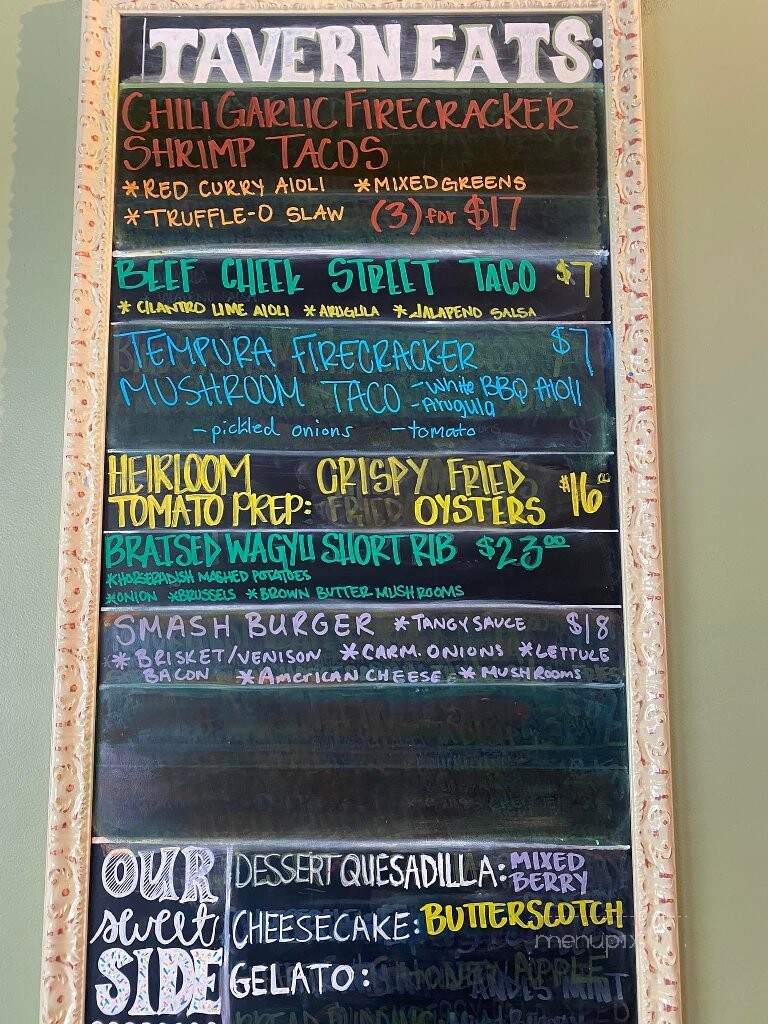 TAVERN EATS:
CHILI GARLIC FIRECRACKER
SHRIMP TACOS
*RED CURRY AIOLI *MIXED GREENS
*TRUFFLE-O SLAW (3) for $17
BEEF CHEEK STREET TACO $7
*CILANTRO LIME AIOLI *ARUGULA *JALAPENO SALSA
TEMPURA FIRECRACKER $7
MUSHROOM TACO -White BBQ AIOLI
-Arugula
-pickled onions -tomato
HEIRLOOM CRISPY FRIED $16.00
TOMATO PREP: FRIED OYSTERS
BRAISED WAGYU SHORT RIB $23.00
*HORSERADISH MASHED POTATOES
*ONION *BRUSSELS *BROWN BUTTER MUSHROOMS
SMASH BURGER *TANGY SAUCE $18
*BRISKET/VENISON *CARM. ONIONS *LETTUCE
BACON *AMERICAN CHEESE *MUSHROOMS
OUR sweet SIDE
DESSERT QUESADILLA: MIXED BERRY
CHEESECAKE: BUTTERSCOTCH
menupix
GELATO: HONEY APPLE
ANDES MINT
BREAD PUDDING